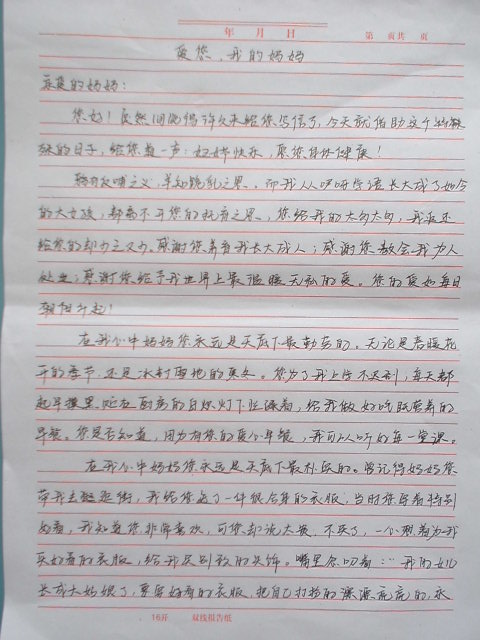 年 月 日 第 页共 页
爱您，我的妈妈
亲爱的妈妈：
您好！居然间觉得许久未给您写信了，今天就借助这个特殊
的日子，给您道一声：妇女快乐，愿您身体健康！
鸦有反哺之义，羊知跪乳之恩。而我从咿呀学语长大成了如今
的大女孩，都离不开您的抚育之恩，您给我的太多太多，我返还
给您的却少之又少。感谢您养育我长大成人；感谢您教会我为人
处世；感谢您给予我世界上最温暖无私的爱。您的爱如每日
朝阳升起！
在我心中妈妈您永远是天底下最勤劳的。无论是春暖花
开的季节，还是冰封雪地的寒冬。您为了我上学不迟到，每天都
起早摸黑，站在厨房的白炽灯下忙碌着，给我做好吃既营养的
早餐。您是否知道，因为有您的爱心早餐，我可以听好每一堂课。
在我心中妈妈您永远是天底下最朴实的。曾记得妈妈您
带我去逛逛街，我给您选了一件很合身的衣服，当时您穿着特别
好看，我知道您非常喜欢，可您却说太贵，不买了，一个劲着为我
买好看的衣服，给我买别致的头饰。嘴里念叨着：“我的女儿
长成大姑娘了，要穿好看的衣服，把自己打扮的漂漂亮亮的，衣
16开 双线报告纸